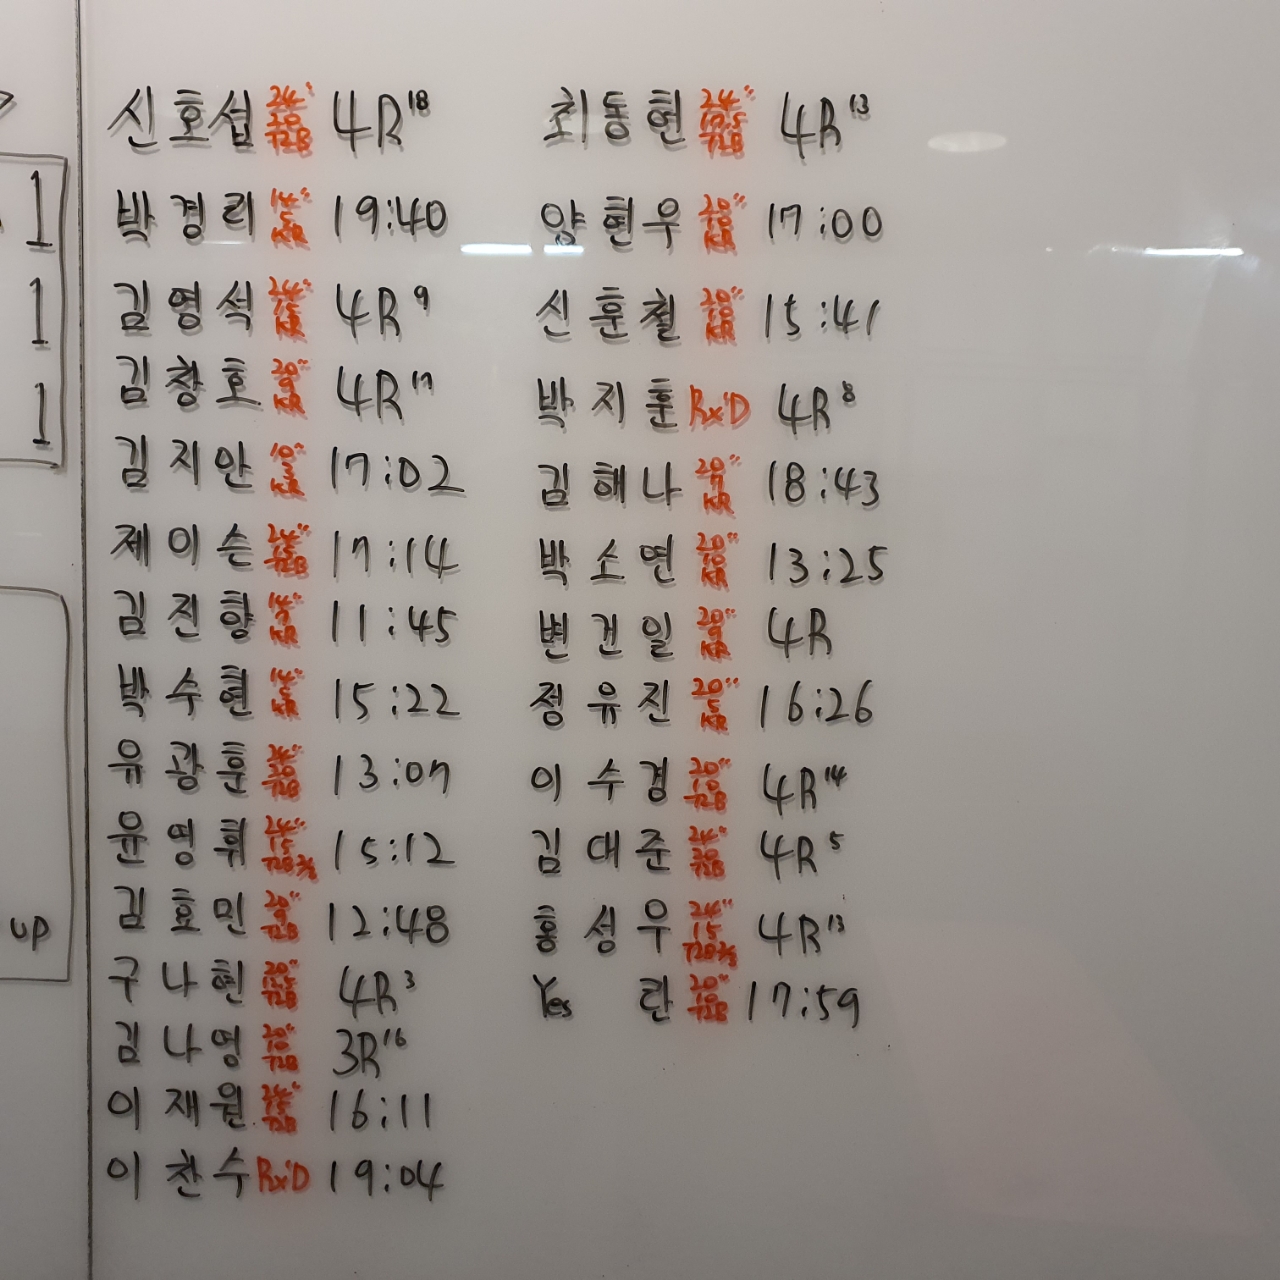 1
1
1
up
신호섭 24" 20 T2B 4R18
박경리 14" 5 KR 19:40
김영석 24" 15 KR 4R9
김창호 20" 9 KR 4R17
김지안 10" 3 KR 17:02
제이슨 24" 15 T2B 17:14
김진향 14" 7 KR 11:45
박수현 14" 5 KR 15:22
유광훈 24" 20 T2B 13:07
윤영휘 24" 15 T2B 15:12
김효민 20" 9 T2B 12:48
구나현 20" T2B 4R3
김나영 20" 10 T2B 3R16
이재원 24" 15 T2B 16:11
이찬수 Rx'D 19:04
최동현 24" 17.5 T2B 4R13
양현우 20" 10 KR 17:00
신훈철 20" 10 KR 15:41
박지훈 Rx'D 4R8
김해나 20" 7 KR 18:43
박소연 20" 10 KR 13:25
변건일 20" 9 KR 4R
정유진 20" 5 KR 16:26
이수경 20" 10 T2B 4R14
김대준 24" 20 T2B 4R5
홍성우 24" 15 T2B 4R13
Yes 란 20" 10 T2B 17:59